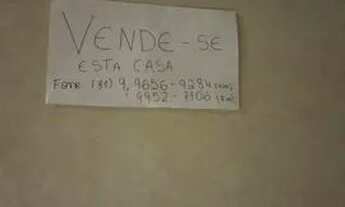 VENDE-SE
ESTA CASA
FONE: (81) 9,9656-9284
9952-7106